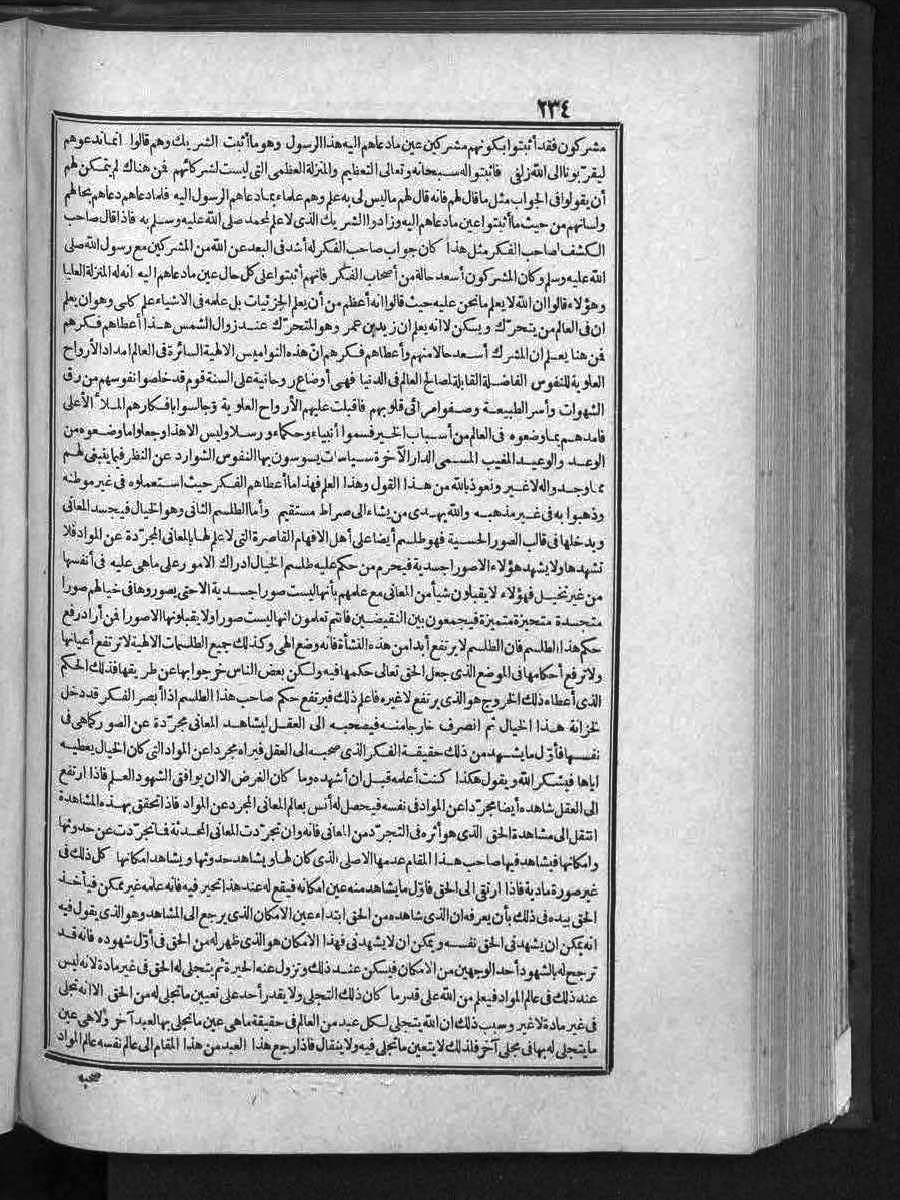 ٢٣٤
مشركون فقد أثبتوا بكونهم مشركين عين مادعاهم اليه هذا الرسول وهو ما أثبت الشريك وهم قالوا انما ندعوهم
ليقربونا الى الله زلفى فاثبتوا له سبحانه وتعالى التعظيم والمنزلة العظمى التى ليست لشركائهم فمن هناك لم يتمكن لهم
أن يقولوا فى الجواب مثل ما قال لهم فانه قال لهم ما ليس لى به علم وهم علماء بما دعاهم الرسول اليه فما دعاهم دعاهم بحالهم
ولسانهم من حيث ما أثبتوا عين مادعاهم اليه وزادوا الشريك الذى لا علم لمحمد صلى الله عليه وسلم به فاذا قال صاحب
الكشف لصاحب الفكر مثل هذا كان جواب صاحب الفكر له أشد فى البعد عن الله من المشركين مع رسول الله صلى
الله عليه وسلم وكان المشركون أسعد حالة من أصحاب الفكر فانهم أثبتوا على كل حال عين مادعاهم اليه انه له المنزلة العليا
وهؤلاء قالوا ان الله لا يعلم ما نحن عليه حيث قالوا انه أعظم من أن يعلم الجزئيات بل علمه فى الاشياء علم كلى وهو ان يعلم
ان فى العالم من يتحرك ويسكن لا انه يعلم ان زيد بن عمر وهو المتحرك عند زوال الشمس هذا أعطاهم فكرهم
فمن هنا يعلم ان المشرك أسعد حالا منهم وأعطاهم فكرهم ان هذه النواميس الالهية السائرة فى العالم امداد الأرواح
العلوية للنفوس الفاضلة القابلة لصالح العالم فى الدنيا فهى أوضاع روحانية على السنة قوم قد خلصوا نفوسهم من رق
الشهوات وأسر الطبيعة وصفوا مرائى قلوبهم فاقبلت عليهم الأرواح العلوية وجالسوا بافكارهم الملأ الأعلى
فامدهم بما وضعوه فى العالم من أسباب الخير فسموا أنبياء وحكماء ورسلا وليس الا هذا وجعلوا ما وضعوه من
الوعد والوعيد المغيب المسمى الدار الآخرة سياسات يسوسون بها النفوس الشوارد عن النظر فيما ينبغى لهم
مما وجدوا له لا غير ونعوذ بالله من هذا القول وهذا العلم فهذا ما أعطاهم الفكر حيث استعملوه فى غير موطنه
وذهبوا به فى غير مذهبه والله يهدى من يشاء الى صراط مستقيم وأما الطلسم الثانى وهو الخيال فيجسد المعانى
ويدخلها فى قالب الصور الحسية فهو طلسم أيضا على أهل الافهام القاصرة التى لا علم لها بالمعانى المجردة عن المواد فلا
تشهدها ولا يشهد هؤلاء الا صورا جسدية فيحرم من حكم عليه طلسم الخيال ادراك الامور على ماهى عليه فى أنفسها
من غير تخيل فهؤلاء لا يقبلون شيأ من المعانى مع علمهم بأنها ليست صورا جسدية الا حتى يصوروها فى خيالهم صورا
متجسدة متحيزة متميزة فيجمعون بين النقيضين فانهم تعلمون انها ليست صورا ولا يقبلونها الا صورا فمن أراد رفع
حكم هذا الطلسم فان الطلسم لا يرتفع أبدا من هذه النشأة فانه وضع الهى وكذلك جميع الطلسمات الالهية لا ترتفع أعيانها
ولا ترفع أحكامها فى الموضع الذى جعل الحق تعالى حكمها فيه ولكن بعض الناس خرجوا بها عن طريقها فذلك الحكم
الذى أعطاه ذلك الخروج هو الذى يرتفع لا غيره فاعلم ذلك فيرتفع حكم صاحب هذا الطلسم اذا أبصر الفكر قد دخل
لخزانة هذا الخيال ثم انصرف خارجا منه فيصحبه الى العقل ليشاهد المعانى مجردة عن الصور كماهى فى
نفسها فأول ما يشهد من ذلك حقيقة الفكر الذى صحبه الى العقل فيراه مجردا عن المواد التى كان الخيال يعطيه
اياها فيشكر الله ويقول هكذا كنت أعلمه قبل ان أشهده وما كان الغرض الا ان يوافق الشهود العلم فاذا ارتفع
الى العقل شاهده أيضا مجردا عن المواد فى نفسه فيحصل له أنس بعالم المعانى المجرد عن المواد فاذا تحقق بهذه المشاهدة
انتقل الى مشاهدة الحق الذى هو أثره فى التجرد من المعانى فانه وان تجردت المعانى المحدثة فما تجردت عن حدوثها
وامكانها فيشاهد فيها صاحب هذا المقام عدمها الاصلى الذى كان لها ويشاهد حدوثها ويشاهد امكانها كل ذلك فى
غير صورة مادية فاذا ارتقى الى الحق فاول ما يشاهد منه عين امكانه فيقع له عند هذا تحير فيه فانه علمه غير ممكن فيأخذ
الحق بيده فى ذلك بأن يعرفه ان الذى شاهده من الحق ابتداء عين الامكان الذى يرجع الى المشاهد وهو الذى يقول فيه
انه يمكن ان يشهد فى الحق نفسه ويمكن ان لا يشهد فى فهذا الامكان هو الذى ظهر له من الحق فى أول شهوده فانه قد
ترجح له بالشهود أحد الوجهين من الامكان فيسكن عند ذلك وتزول عنه الحيرة ثم يتجلى له الحق فى غير مادة لانه ليس
عند ذلك فى عالم المواد فيعلم من الله على قدر ما كان ذلك التجلى ولا يقدر أحد على تعيين ما تجلى له من الحق الا انه تجلى
فى غير مادة لا غير وسبب ذلك ان الله يتجلى لكل عبد من العالم فى حقيقة ماهى عين ما تجلى بها لعبد آخر ولا هى عين
ما يتجلى له بها فى مجلى آخر فلذلك لا يتعين ما تجلى فيه ولا ينقال فاذا رجع هذا العبد من هذا المقام الى عالم نفسه عالم المواد
صحبه